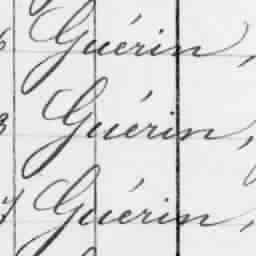 6 Guérin,
8 Guérin,
7 Guérin,